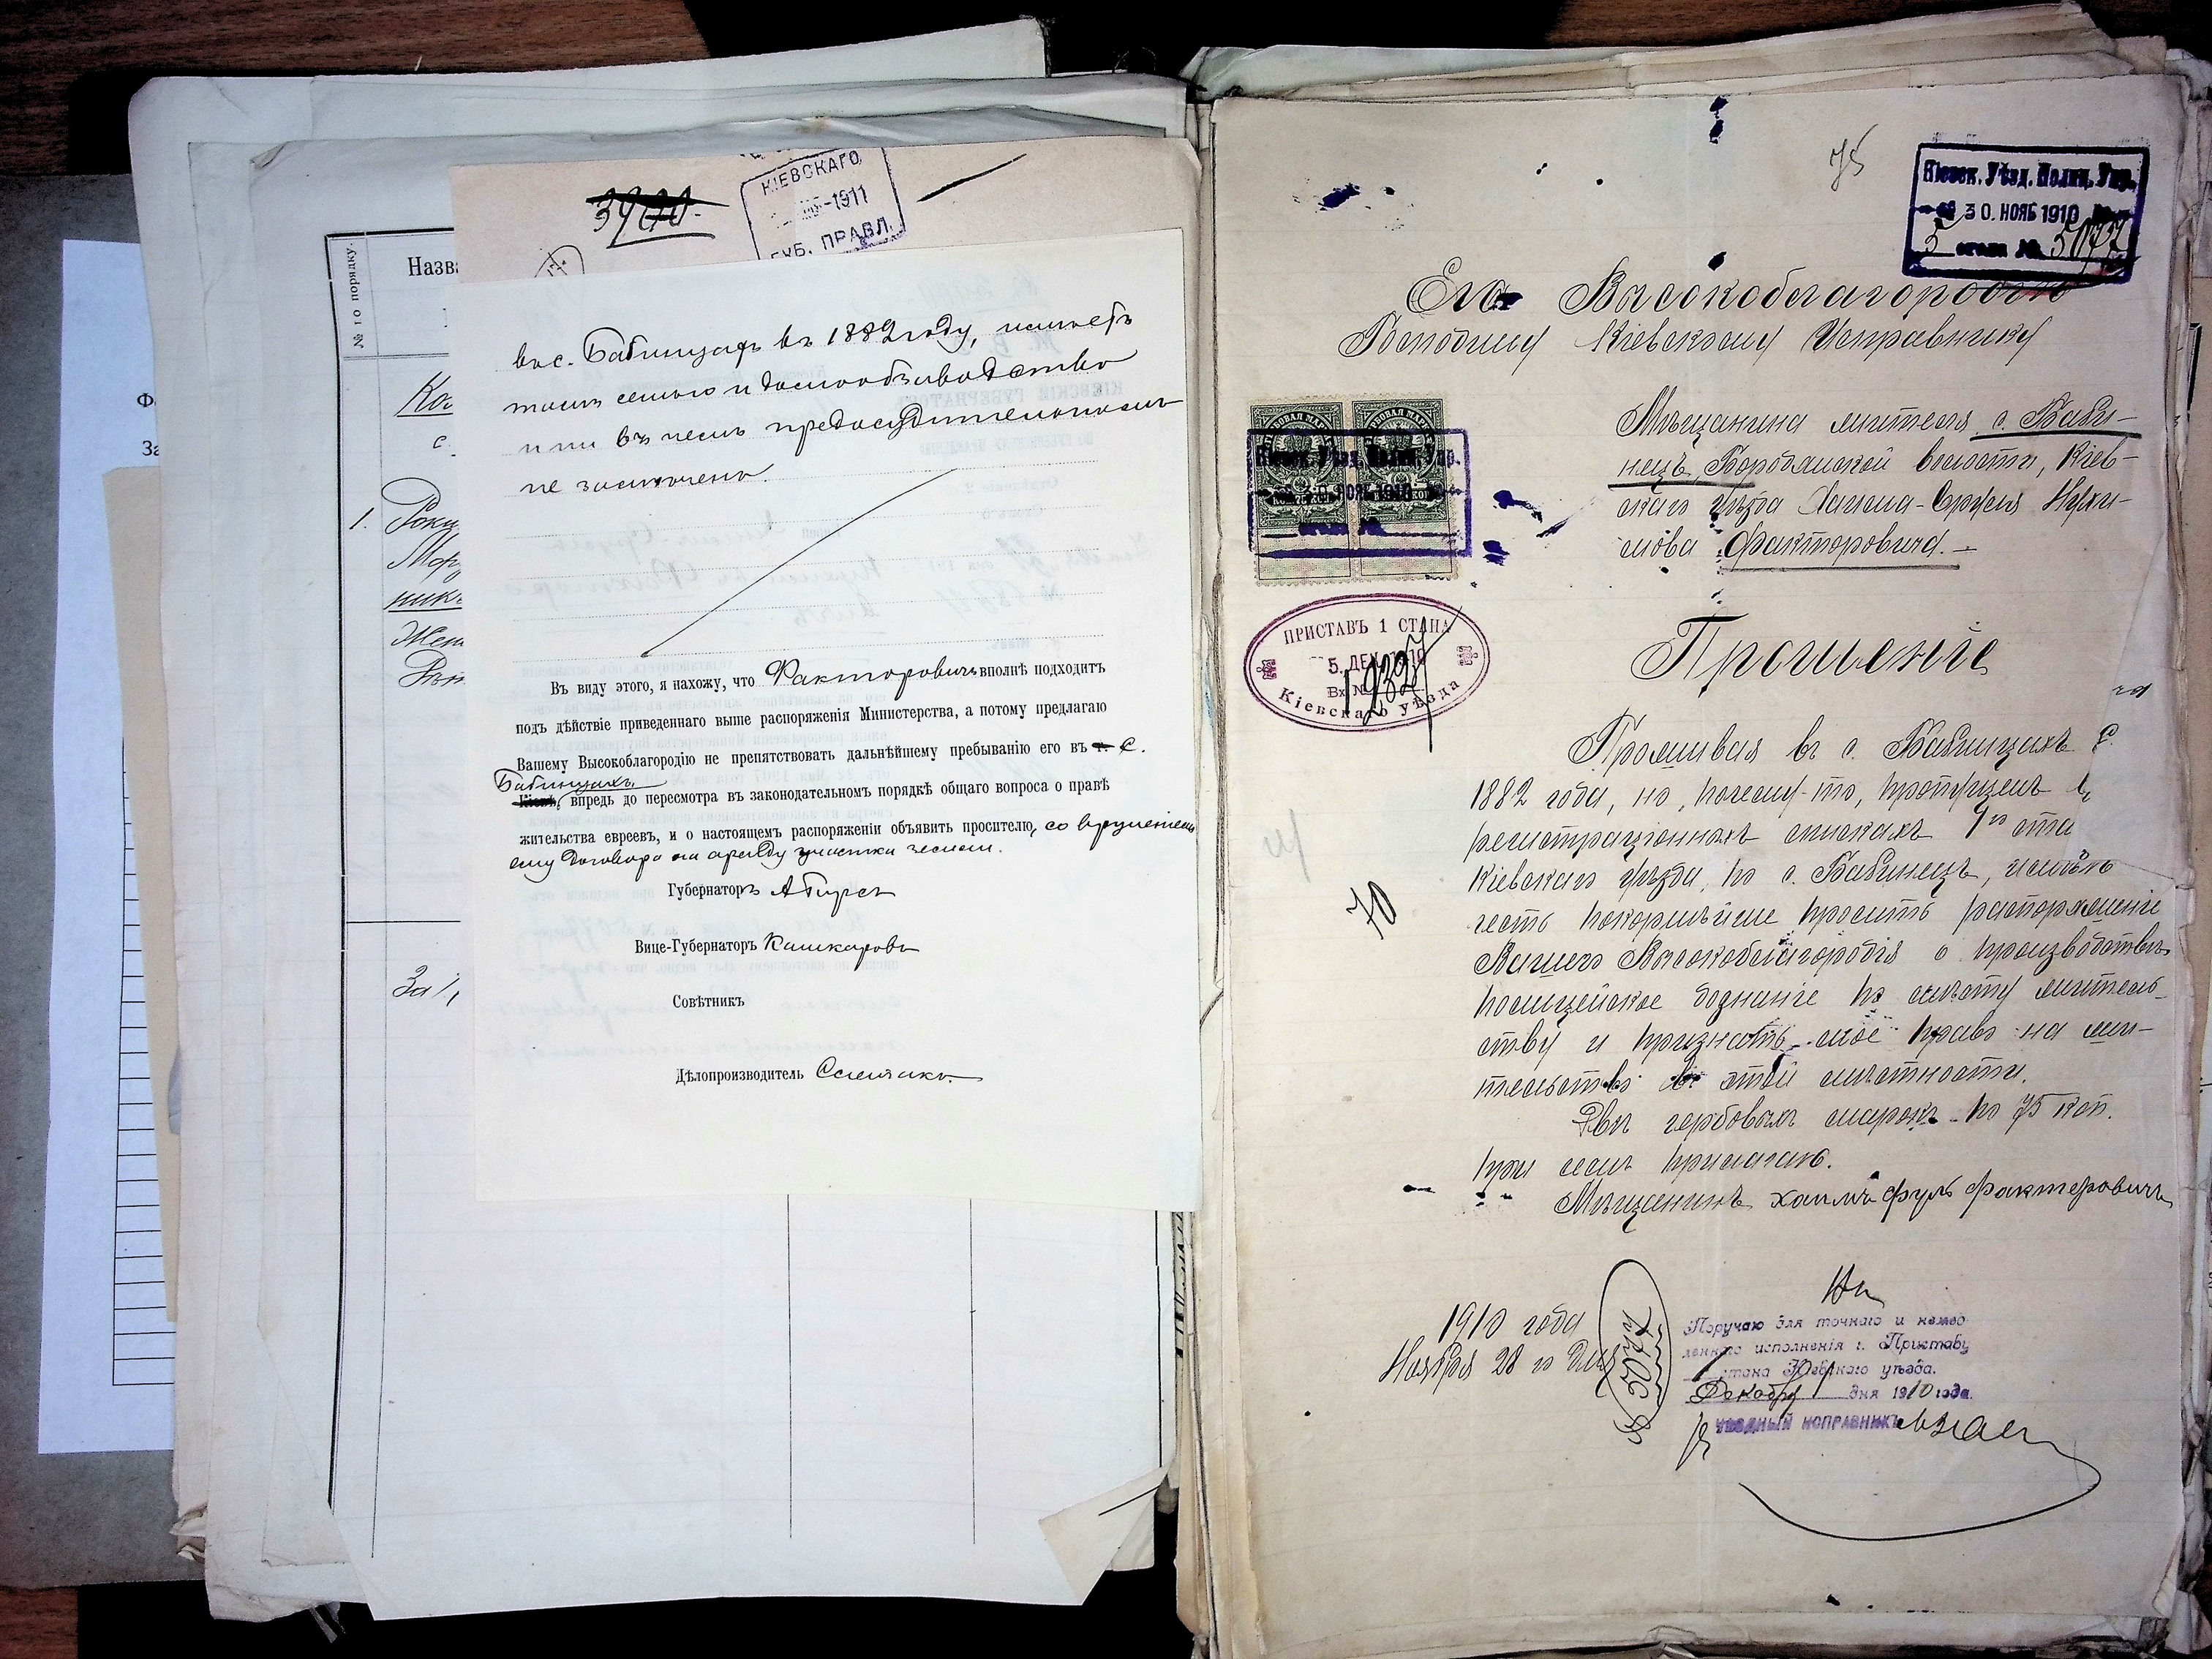 № по порядку.
Назва
с.
1.
Жен
КІЕВСКАГО
1911
ГУБ. ПРАВЛ.
въ с. Бабинцахъ въ 1882 году, имѣетъ
тамъ семью и домообзаводство
и ни въ чемъ предосудительномъ
не замѣчено.
Въ виду этого, я нахожу, что Факторовичъ вполнѣ подходитъ
подъ дѣйствіе приведеннаго выше распоряженія Министерства, а потому предлагаю
Вашему Высокоблагородію не препятствовать дальнѣйшему пребыванію его въ г. с.
Бабинцахъ
Кіевѣ, впредь до пересмотра въ законодательномъ порядкѣ общаго вопроса о правѣ
жительства евреевъ, и о настоящемъ распоряженіи объявить просителю, со врученіемъ
ему договора на аренду участка земли.
Губернаторъ А Гирсъ
Вице-Губернаторъ Кашкаровъ
Совѣтникъ
Дѣлопроизводитель
75
Кіевск. Уѣзд. Полиц. Упр.
30. НОЯБ 1910
3 стола №
Его Высокоблагородію
Господину Кіевскому Исправнику
Мѣщанина жителя с. Баби-
нецъ, Бородянской волости, Кіев-
скаго уѣзда Хаима-Сруля Нухи-
мова Факторовича. –
Кіевск. Уѣзд. Полиц. Упр.
НОЯБ 1910
стола №.
ПРИСТАВЪ 1 СТАНА
5. ДЕК. 1910
Вх. №
Кіевскаго уѣзда
Прошеніе
Проживая въ с. Бабинцахъ с.
1882 года, но, почему-то, пропущенъ въ
регистраціонныхъ спискахъ 1го ста
Кіевскаго уѣзда, по с. Бабинецъ, имѣю
честь покорнѣйше просить распоряженіе
Вашего Высокоблагородія о производствѣ
полицейское дознаніе по мѣсту житель-
ству и признать мое право на жи-
тельство въ этой мѣстности.
Двѣ гербовыхъ марокъ по 75 коп.
при семъ прилагаю.
Мѣщанинъ хаимъ Сруль Факторовичъ
70
1910 года
Ноября 28 го дня
Поручаю для точнаго и немед
леннаго исполненія г. Приставу
1 стана Кіевскаго уѣзда.
Декабря 1 дня 1910 года.
УѢЗДНЫЙ ИСПРАВНИКЪ